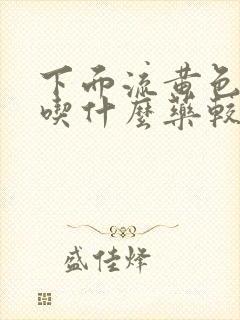 下而流黄色
喫什麽藥較
盛佳烽